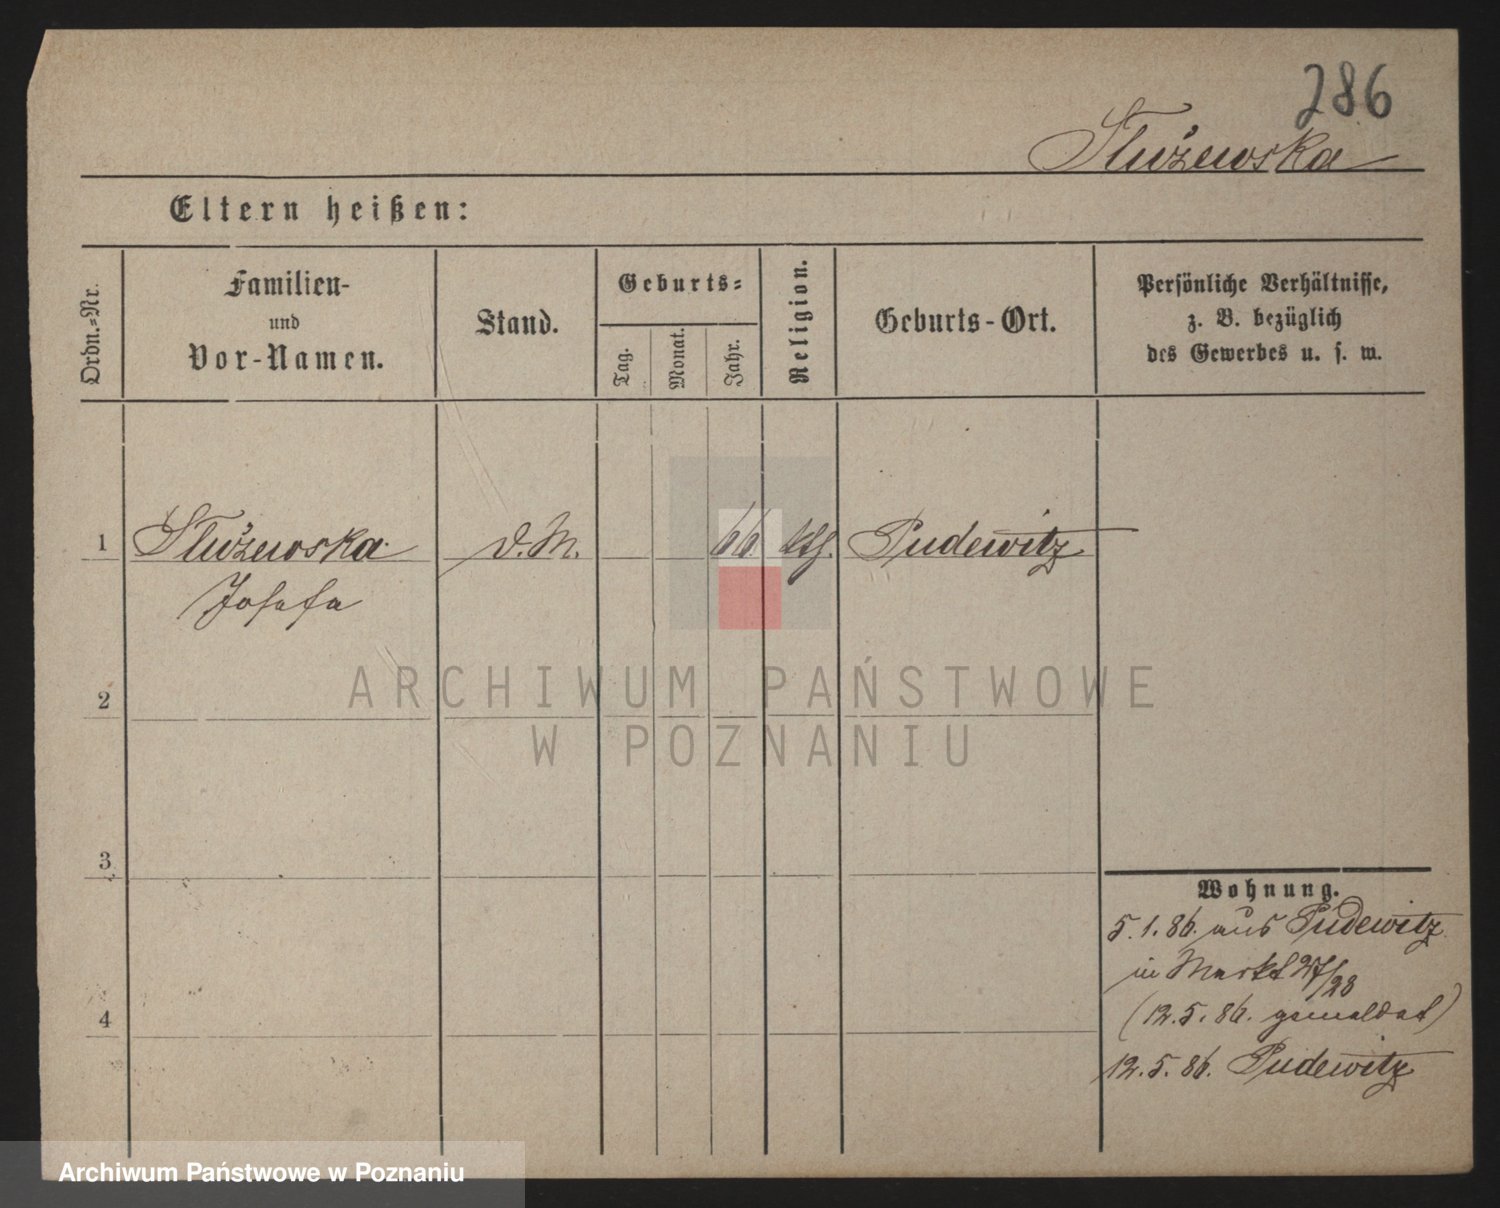 286
Służewska
Eltern heißen:
Ordn.=Nr.
Familien-
und
Vor-Namen.
Stand.
Geburts=
Tag.
Monat.
Jahr.
Religion.
Geburts-Ort.
Persönliche Verhältnisse,
z. B. bezüglich
des Gewerbes u. s. w.
1 Służewska d. M. 66 kth. Pudewitz
Josefa
ARCHIWUM PAŃSTWOWE
W POZNANIU
2
3
4
Wohnung.
5.1.86. aus Pudewitz
in Markt 27/28
(12.5.86. gemeldet)
12.5.86. Pudewitz
Archiwum Państwowe w Poznaniu